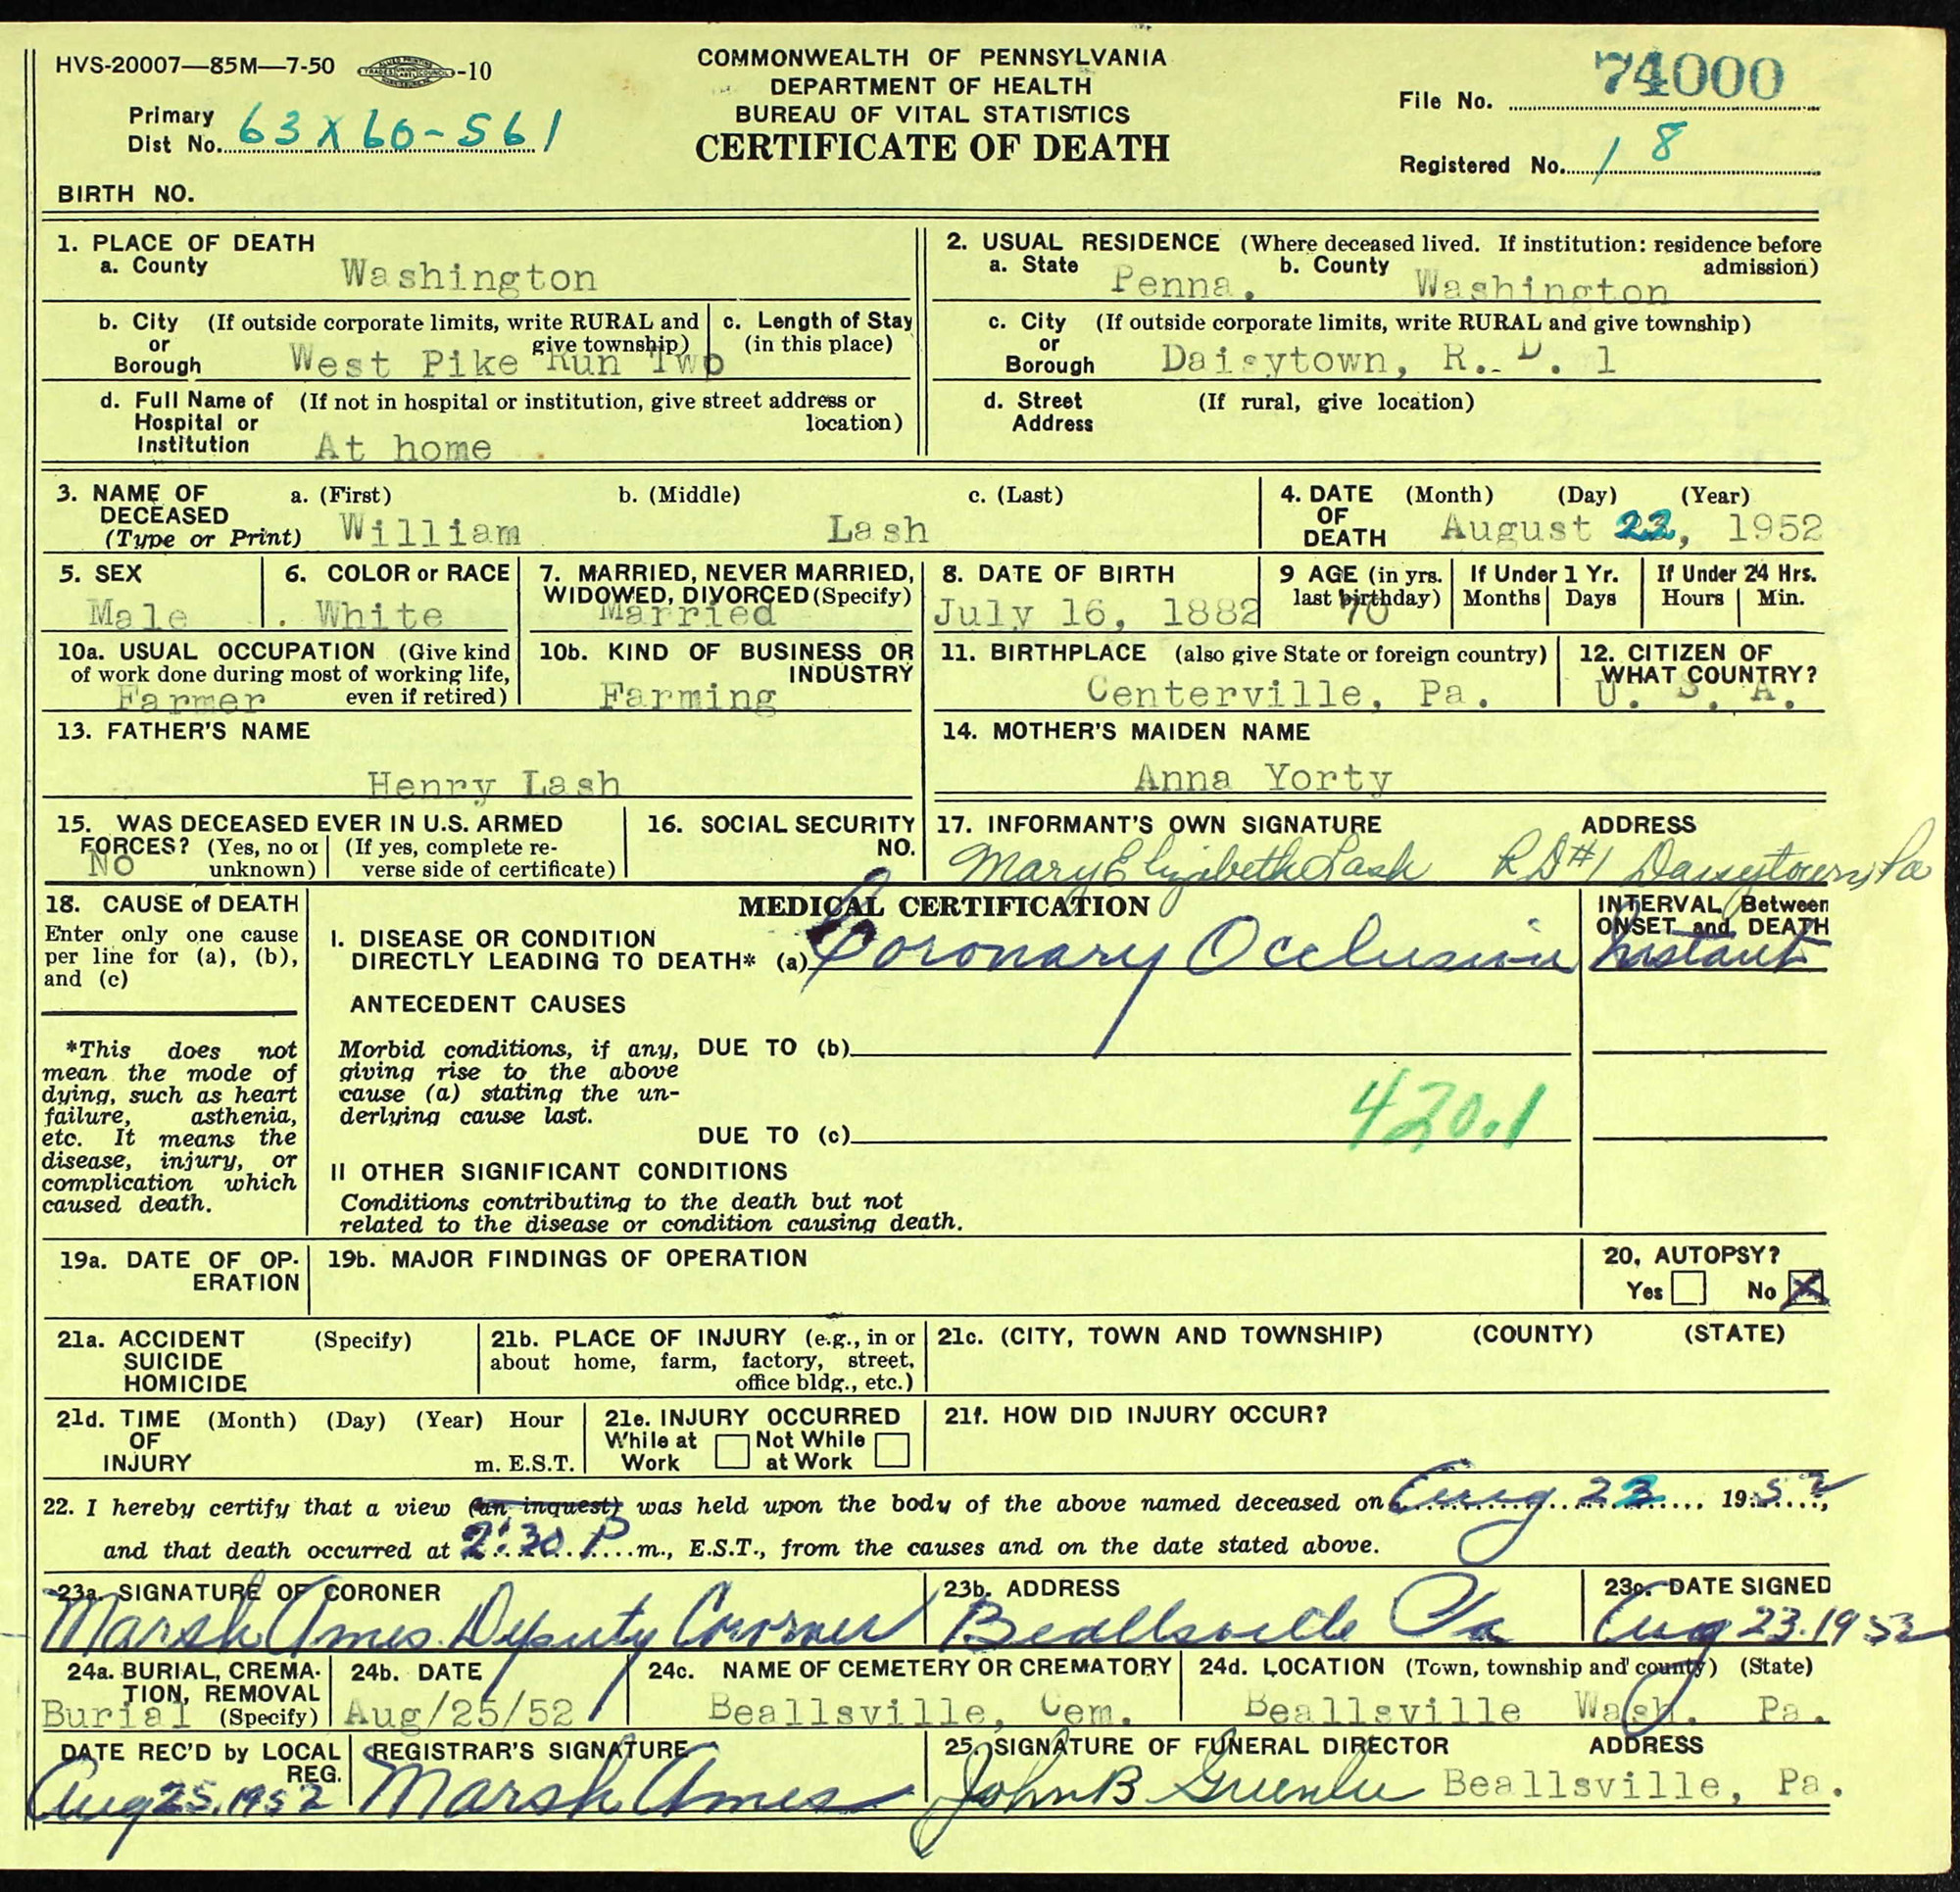 HVS-20007—85M—7-50 -10
COMMONWEALTH OF PENNSYLVANIA
DEPARTMENT OF HEALTH
BUREAU OF VITAL STATISTICS
CERTIFICATE OF DEATH
Primary
Dist No. 63X60-561
File No. 74000
Registered No. 18
BIRTH NO.
1. PLACE OF DEATH
a. County Washington
2. USUAL RESIDENCE (Where deceased lived. If institution: residence before
admission)
a. State Penna. b. County Washington
b. City (If outside corporate limits, write RURAL and
or give township)
Borough West Pike Run Twp
c. Length of Stay
(in this place)
c. City (If outside corporate limits, write RURAL and give township)
or
Borough Daisytown, R. D. 1
d. Full Name of (If not in hospital or institution, give street address or
Hospital or location)
Institution At home
d. Street (If rural, give location)
Address
3. NAME OF a. (First) b. (Middle) c. (Last)
DECEASED
(Type or Print) William Lash
4. DATE (Month) (Day) (Year)
OF
DEATH August 23, 1952
5. SEX
Male
6. COLOR or RACE
White
7. MARRIED, NEVER MARRIED,
WIDOWED, DIVORCED (Specify)
Married
8. DATE OF BIRTH
July 16, 1882
9 AGE (in yrs.
last birthday)
70
If Under 1 Yr.
Months Days
If Under 24 Hrs.
Hours Min.
10a. USUAL OCCUPATION (Give kind
of work done during most of working life,
Farmer even if retired)
10b. KIND OF BUSINESS OR
INDUSTRY
Farming
11. BIRTHPLACE (also give State or foreign country)
Centerville, Pa.
12. CITIZEN OF
WHAT COUNTRY?
U. S. A.
13. FATHER'S NAME
Henry Lash
14. MOTHER'S MAIDEN NAME
Anna Yorty
15. WAS DECEASED EVER IN U.S. ARMED
FORCES? (Yes, no or (If yes, complete re-
No unknown) verse side of certificate)
16. SOCIAL SECURITY
NO.
17. INFORMANT'S OWN SIGNATURE ADDRESS
Mary Elizabeth Lash RD#1 Daisytown, Pa
18. CAUSE of DEATH
Enter only one cause
per line for (a), (b),
and (c)
*This does not
mean the mode of
dying, such as heart
failure, asthenia,
etc. It means the
disease, injury, or
complication which
caused death.
MEDICAL CERTIFICATION
I. DISEASE OR CONDITION
DIRECTLY LEADING TO DEATH* (a) Coronary Occlusion
INTERVAL Between
ONSET and DEATH
Instant
ANTECEDENT CAUSES
Morbid conditions, if any, DUE TO (b)
giving rise to the above
cause (a) stating the un-
derlying cause last.
420.1
DUE TO (c)
II OTHER SIGNIFICANT CONDITIONS
Conditions contributing to the death but not
related to the disease or condition causing death.
19a. DATE OF OP-
ERATION
19b. MAJOR FINDINGS OF OPERATION
20. AUTOPSY?
Yes No X
21a. ACCIDENT (Specify)
SUICIDE
HOMICIDE
21b. PLACE OF INJURY (e.g., in or
about home, farm, factory, street,
office bldg., etc.)
21c. (CITY, TOWN AND TOWNSHIP) (COUNTY) (STATE)
21d. TIME (Month) (Day) (Year) Hour
OF
INJURY m. E.S.T.
21e. INJURY OCCURRED
While at Not While
Work at Work
21f. HOW DID INJURY OCCUR?
22. I hereby certify that a view (an inquest) was held upon the body of the above named deceased on Aug 23 1952,
and that death occurred at 2:30 P m., E.S.T., from the causes and on the date stated above.
23a. SIGNATURE OF CORONER
Marsh Ames Deputy Coroner
23b. ADDRESS
Beallsville Pa
23c. DATE SIGNED
Aug 23. 1952
24a. BURIAL, CREMA-
TION, REMOVAL
Burial (Specify)
24b. DATE
Aug/25/52
24c. NAME OF CEMETERY OR CREMATORY
Beallsville, Cem.
24d. LOCATION (Town, township and county) (State)
Beallsville Wash. Pa.
DATE REC'D by LOCAL
REG.
Aug 25. 1952
REGISTRAR'S SIGNATURE
Marsh Ames
25. SIGNATURE OF FUNERAL DIRECTOR ADDRESS
John B Greenlee Beallsville, Pa.